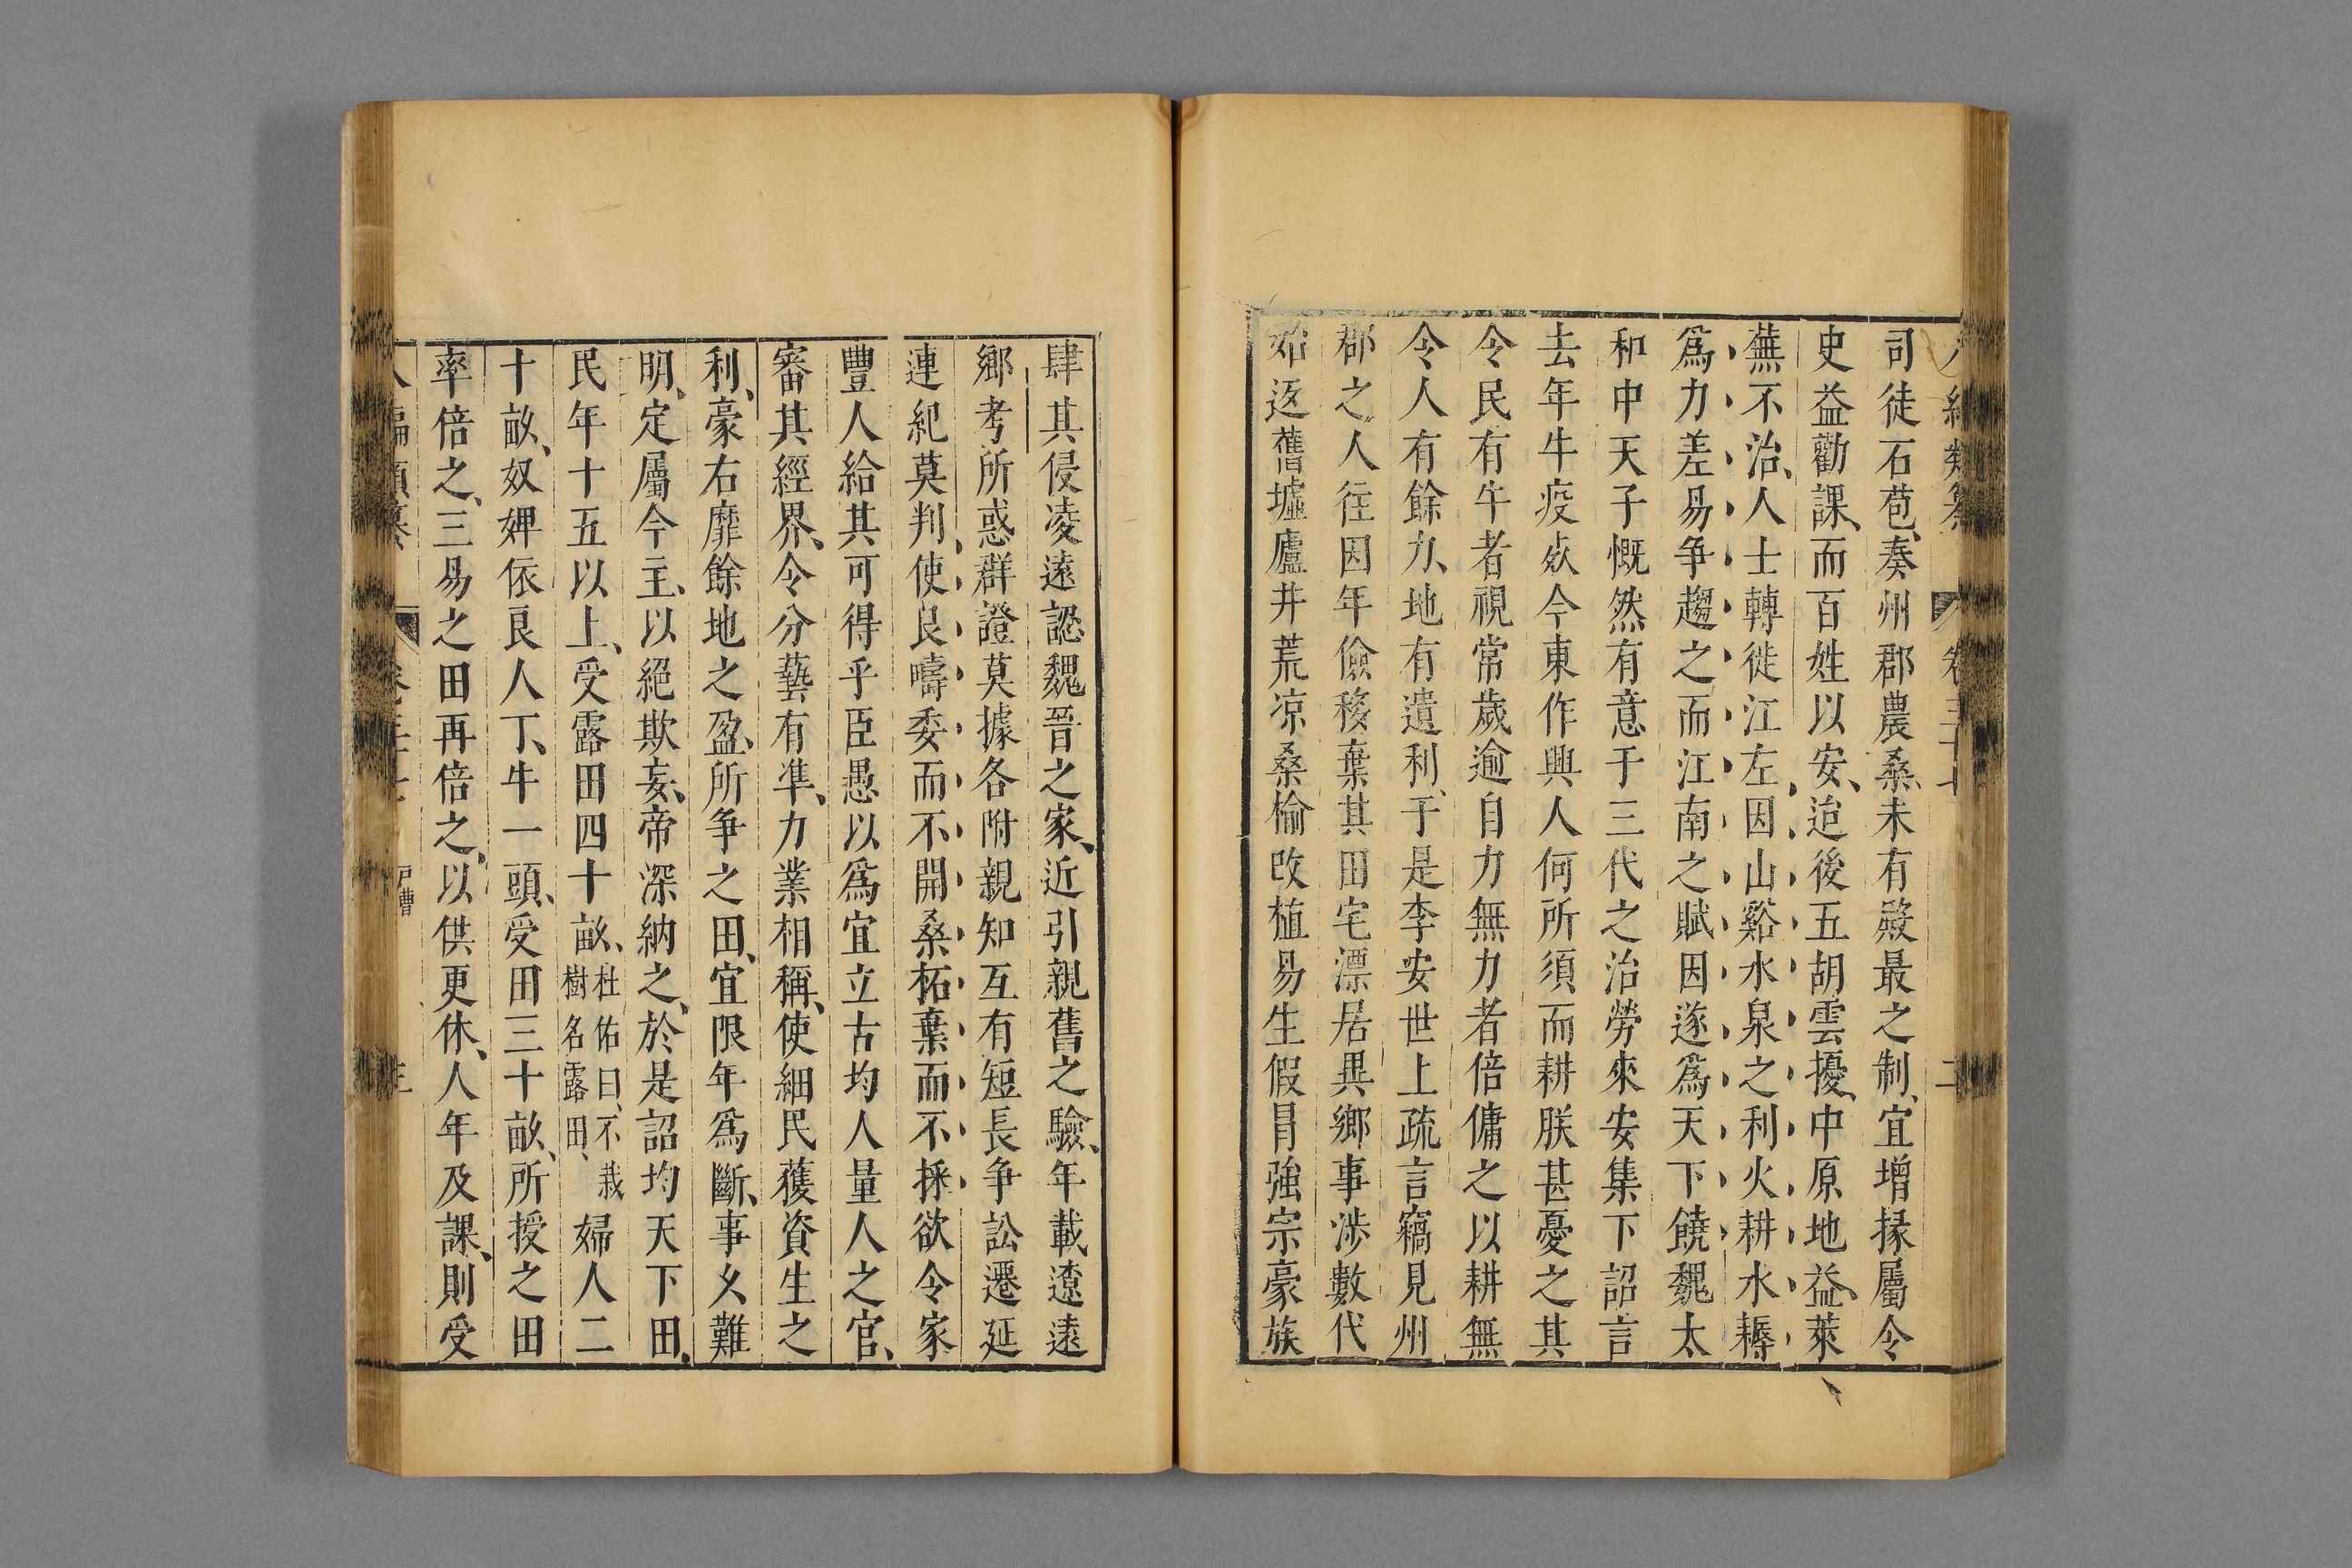 司徒石苞、奏州郡農桑、未有殿最之制、宜增掾屬令
史益勸課、而百姓以安、迨後五胡雲擾、中原地益、萊
蕪不治、人士轉徙江左、因山谿水泉之利火耕水耨
爲力差易争趨之而江南之賦因遂爲天下饒魏太
和中天子慨然有意于三代之治勞來安集下詔言
去年牛疫㱠今東作興人何所須而耕朕甚憂之其
令民有牛者視常歲逾自力無力者倍傭之以耕無
令人有餘力、地有遺利、于是李安世上疏言竊見州
郡之人往因年儉移棄其田宅漂居異鄉事涉數代
始返舊墟廬井荒凉桑榆改植易生假冐強宗豪族
肆其侵凌遠認魏晉之家、近引親舊之驗、年載遼遠
鄉考所惑群證莫據各附親知互有短長争訟遷延
連紀莫判、使良疇委而不開桑柘棄而不採欲令家
豐人給其可得乎臣愚以爲宜立古均人量人之官、
審其經界、令分藝有準、力業相稱、使細民獲資生之
利、豪右靡餘地之盈、所争之田、宜限年爲斷、事久難
明、定屬今主、以絕欺妄、帝深納之、於是詔均天下田、
民年十五以上、受露田四十畝、杜佑曰、不栽樹名露田、婦人二
十畝、奴婢依良人丁、牛一頭、受田三十畝、所授之田
率倍之、三易之田再倍之、以供更休、人年及課、則受
戶曹